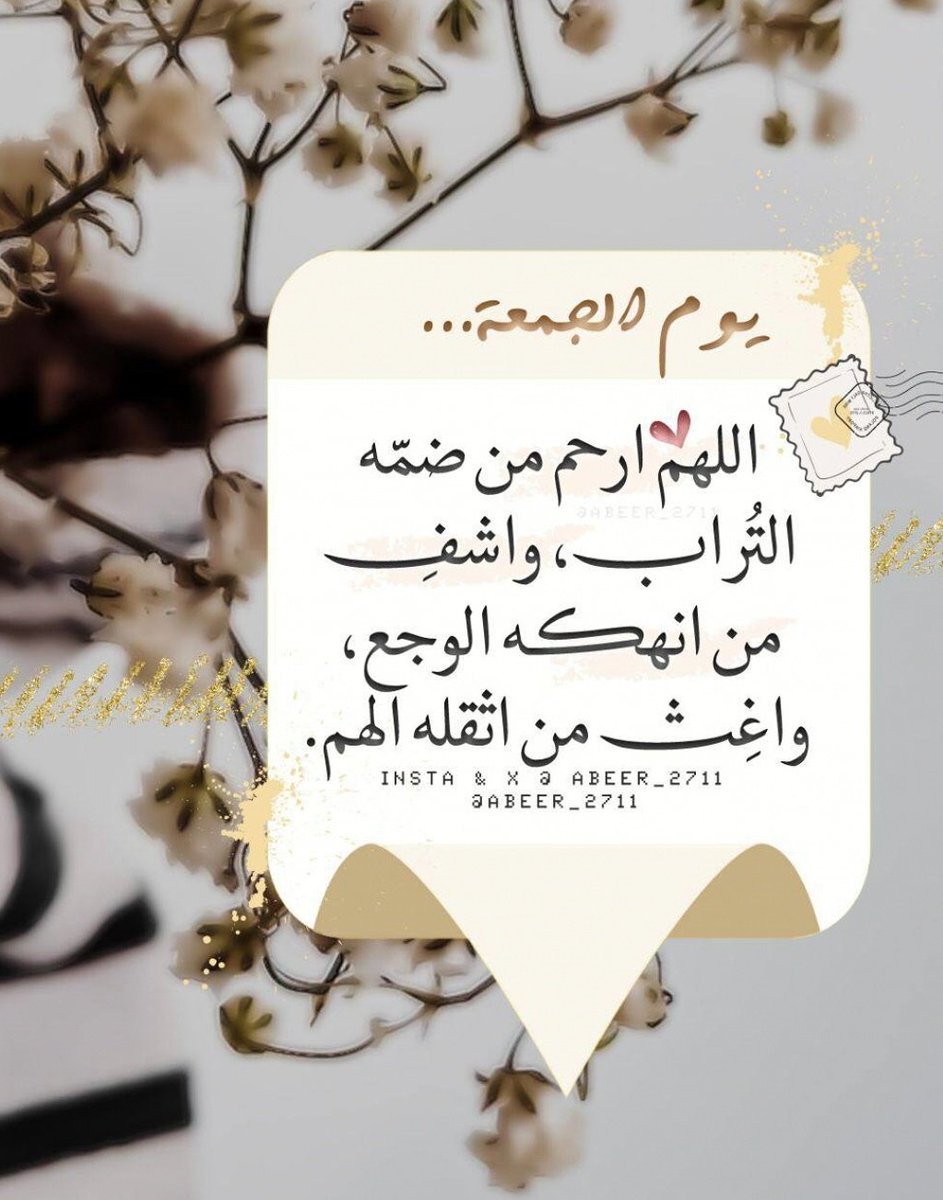 يوم الجمعة...
اللهم ارحم من ضمّه
@ABEER_2711
التُراب، واشفِ
من انهكه الوجع،
واغِث من اثقله الهم.
INSTA & X @ ABEER_2711
@ABEER_2711